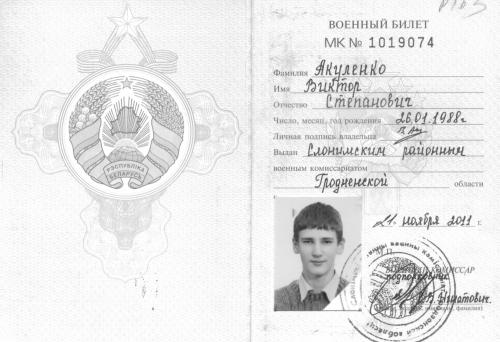 РЭСПУБЛІКА
БЕЛАРУСЬ
ВОЕННЫЙ БИЛЕТ
МК № 1019074
Фамилия Акуленко
Имя Виктор
Отчество Степанович
Число, месяц, год рождения 26.01.1988г
Личная подпись владельца
Выдан Слонимским районным
военным комиссариатом
Гродненской области
21 ноября 2011 г.
М.П.
ВОЕННЫЙ КОМИССАР
подполковник
фамилия)